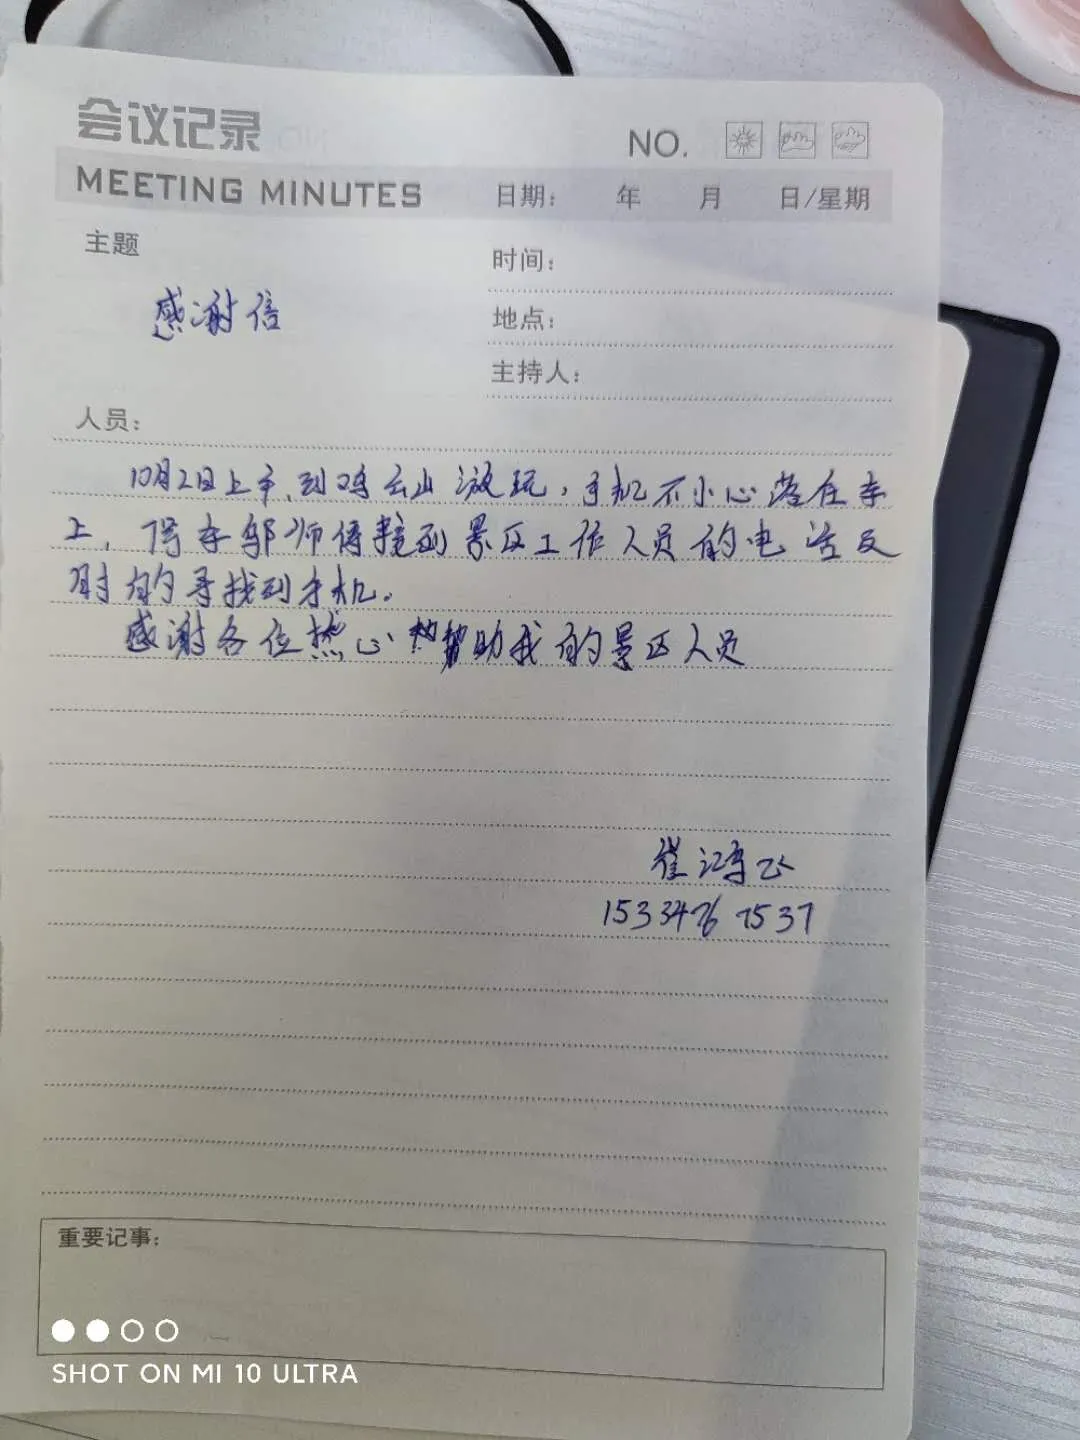 会议记录
NO.
MEETING MINUTES
日期: 年 月 日/星期
主题
时间:
感谢信
地点:
主持人:
人员:
10月2日上午,到鸡云山游玩,手机不小心落在车
上,停车邬师傅接到景区工作人员的电话及
时的寻找到手机.
感谢各位热心帮助我的景区人员
崔鸿飞
15334767537
重要记事:
SHOT ON MI 10 ULTRA